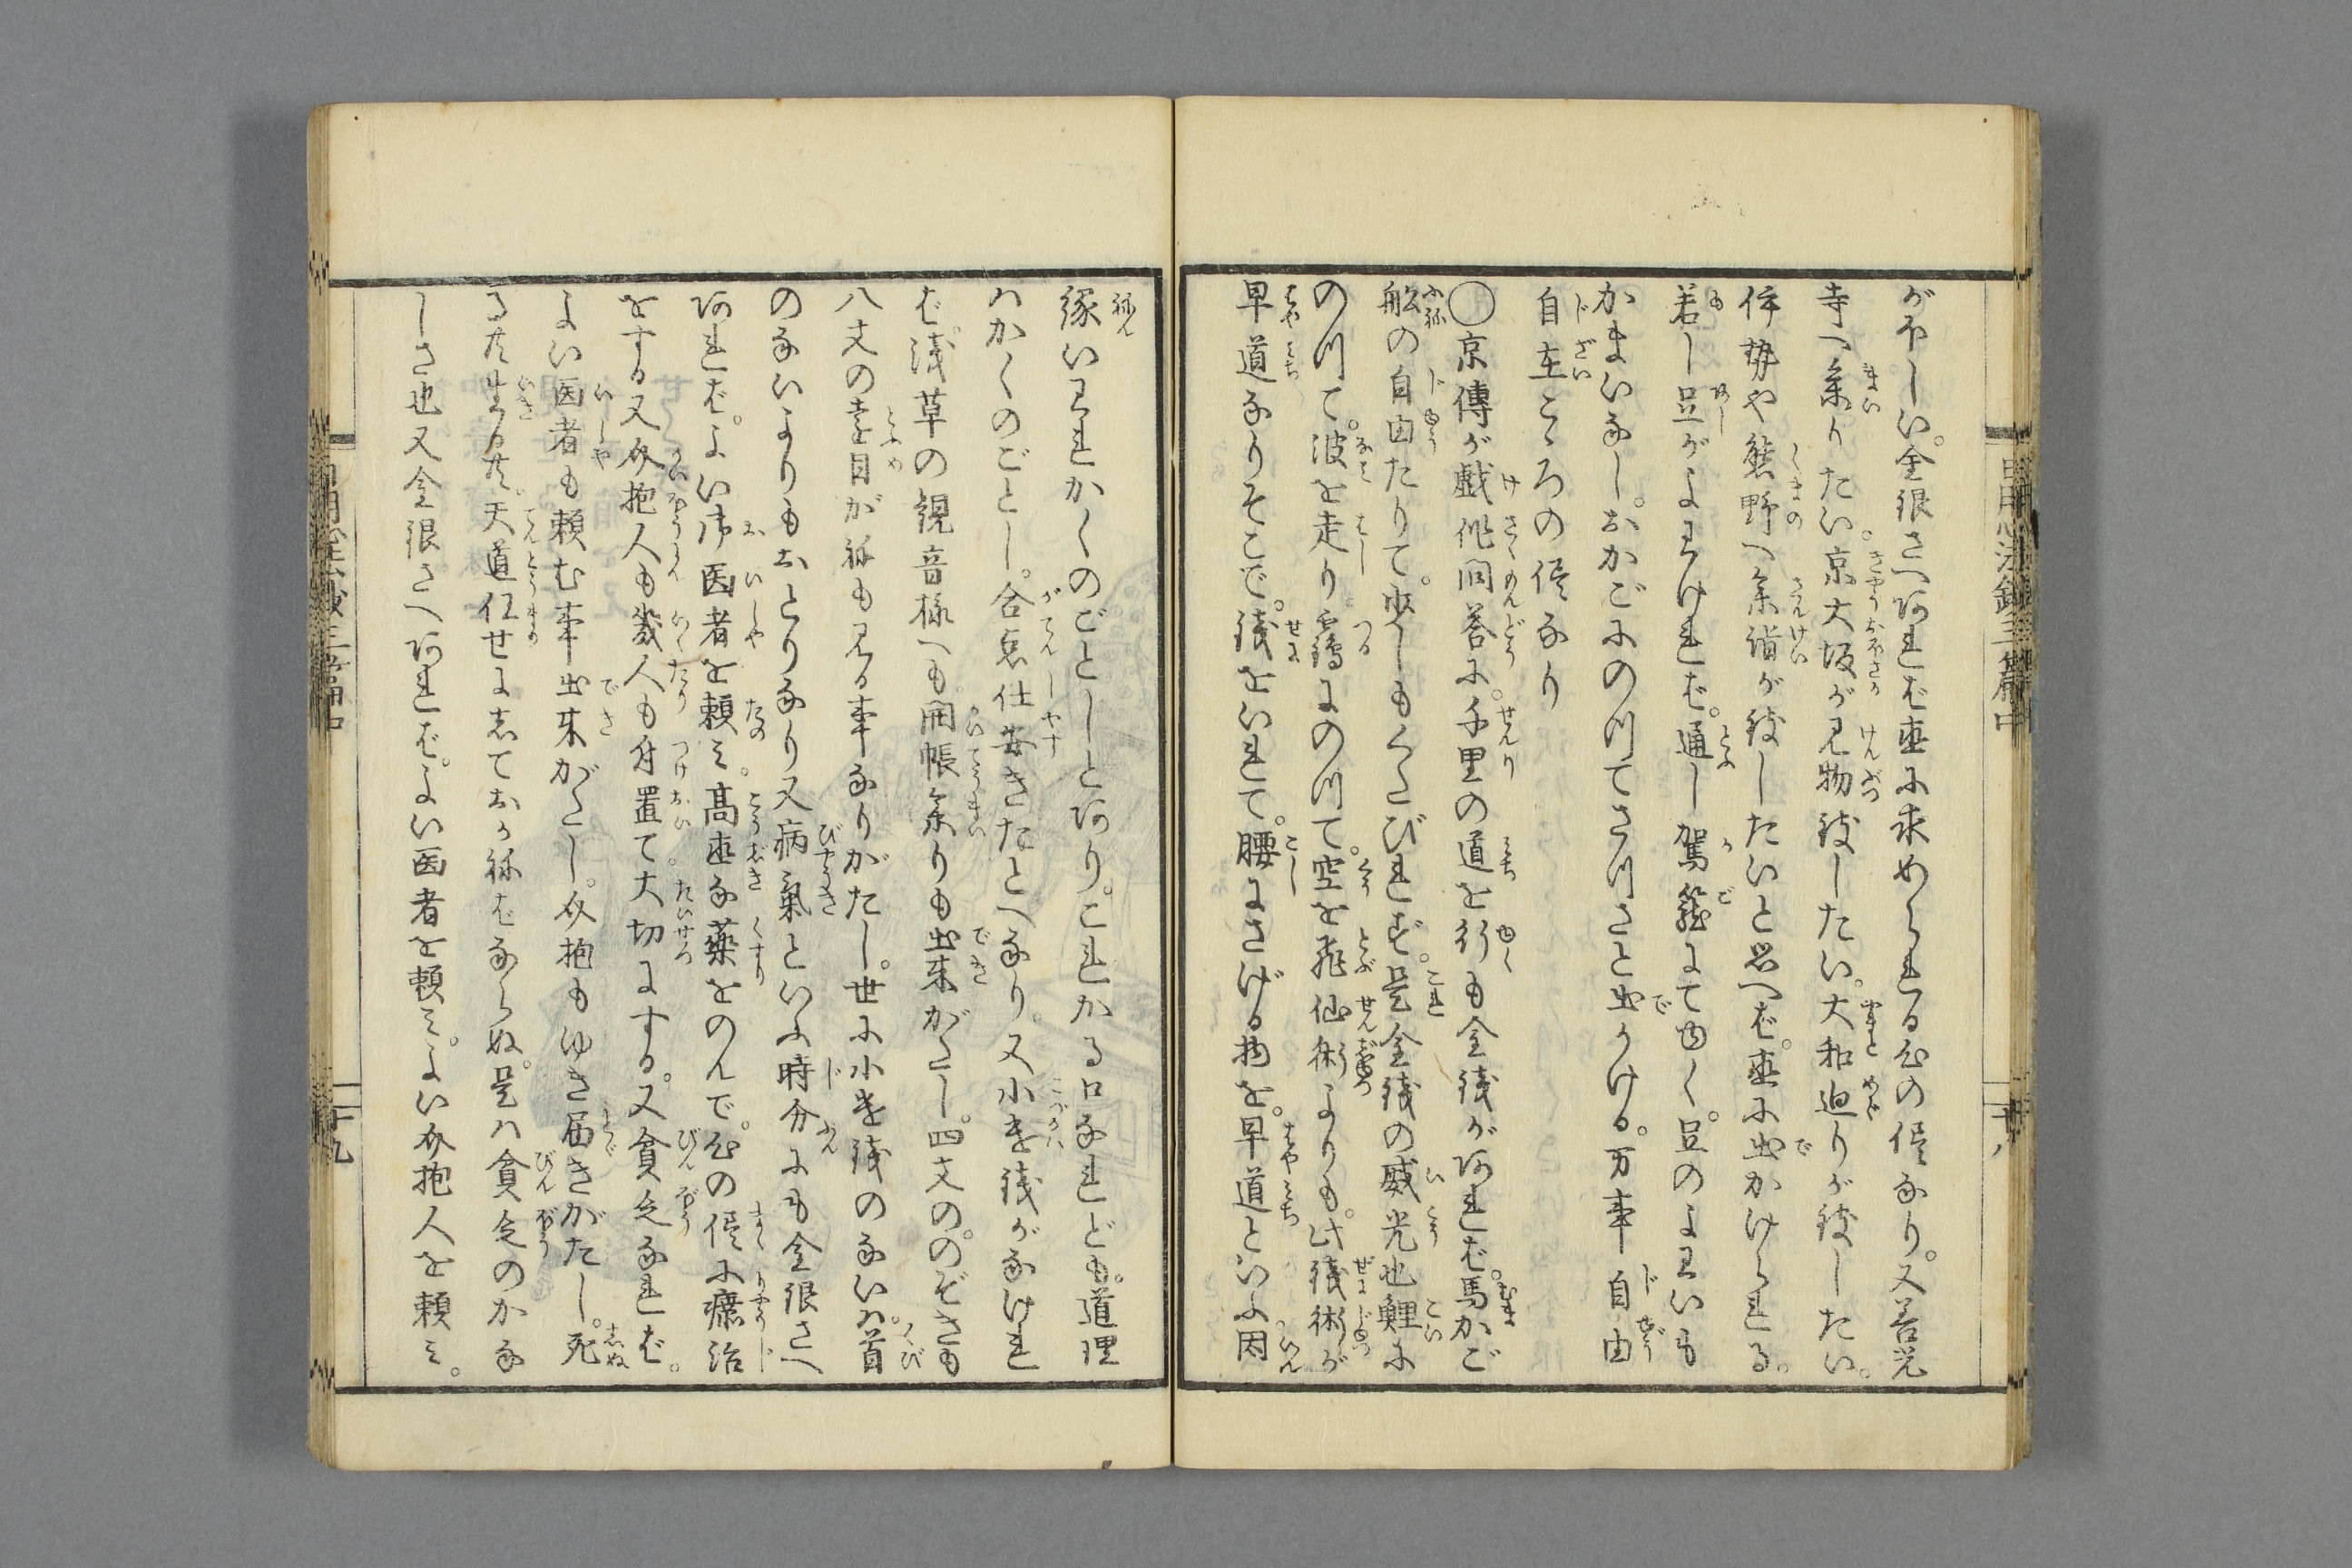 がほしい。金銀さへあれば直に求めらるゝ心の侭なり。又善光
寺へ参りたい。京大坂が見物致したい。大和廻りが致したい。
伊勢や熊野へ参詣が致したいと思へば。直に出かけらるゝ。
若し足がよわければ。通し駕籠にてゆく。足のよわいも
かまいなし。おかごにのつてさつさと出かける。万事自由
自在こゝろの侭なり
〇京傳が戯作問答に。千里の道を行も金銭があれば馬かご
船の自由たりて。少しもくたびれず。是金銭の威光也鯉に
のつて。波を走り。鶴にのつて。空を飛仙術よりも。此銭術が
早道なりそこで。銭をいれて。腰にさげる物を。早道といふ因
縁いわれかくのごとしとあり。これかる口なれども。道理
はかくのごとし。合点仕安きたとへなり。又小遣銭がなけれ
ば。浅草の観音様へも。開帳参りも出来がたし。四文の。のぞきも
八文の遠目がねも見る事なりがたし。世に小遣銭のないは。首
のないよりもおとりなり又病氣といふ時分にも金銀さへ
あれば。よい御医者を頼み。高直な薬をのんで。心の侭に療治
をする又介抱人も幾人も付置て。大切にする。又貧乏なれば。
よい医者も頼む事出来がたし。介抱もゆき届きがたし。死
るた共生る共。天道任せにしておかねばならぬ。是は貧乏のかな
しさ也又金銀さへあれば。よい医者を頼み。よい介抱人を頼み。